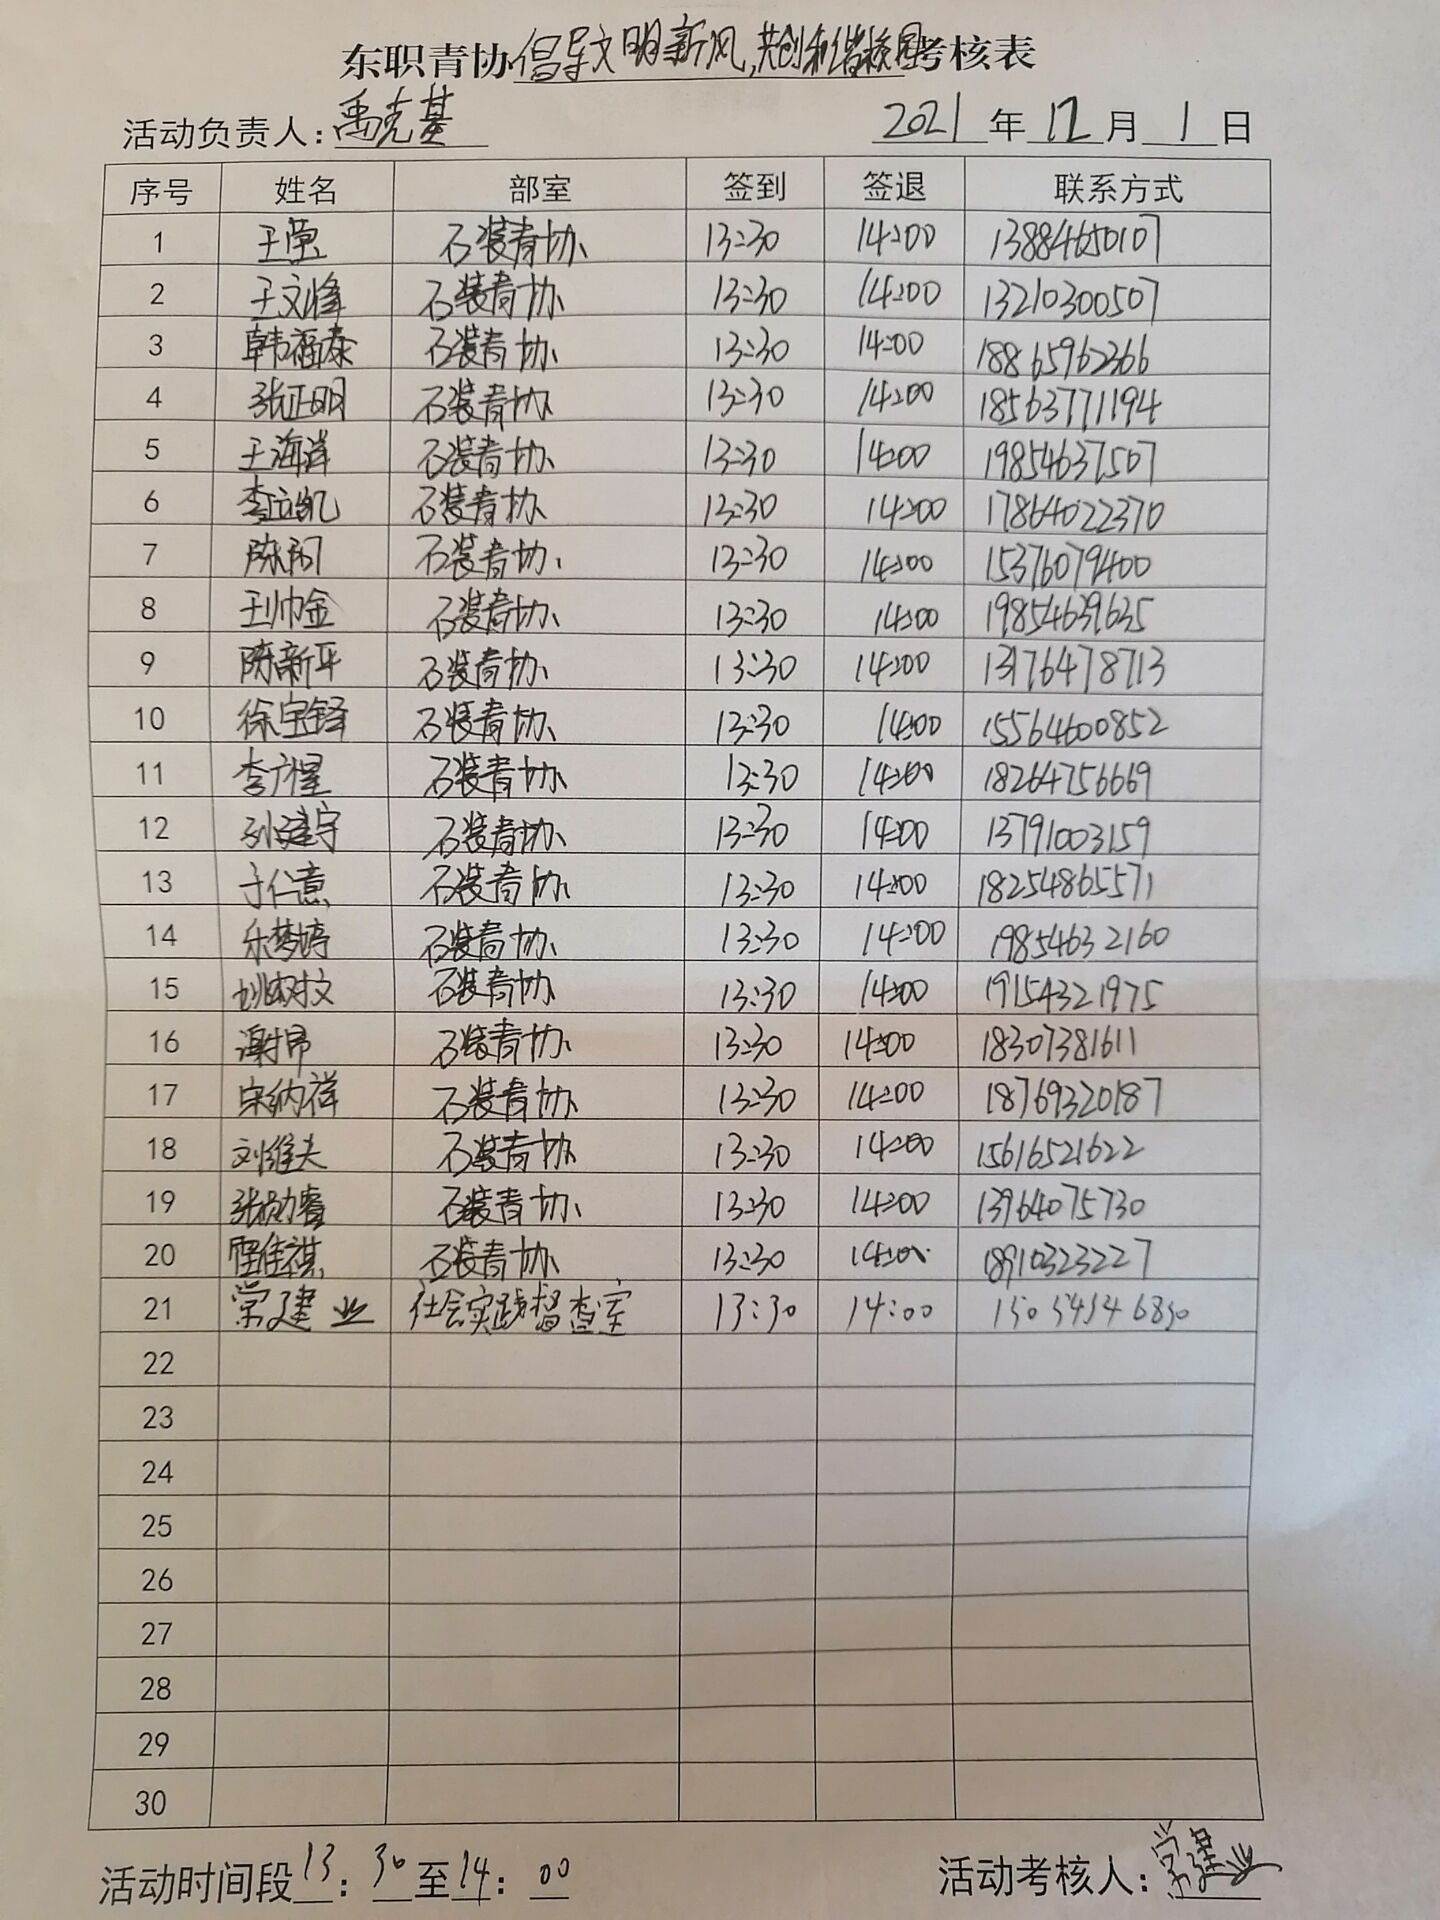 东职青协倡导文明新风,共创和谐校园考核表
活动负责人:禹克基 2021年12月1日
序号 姓名 部室 签到 签退 联系方式
1 王莹 石装青协 13:30 14:00 13884650107
2 王文峰 石装青协 13:30 14:00 13210300507
3 韩福泰 石装青协 13:30 14:00 18865962366
4 张正明 石装青协 13:30 14:00 18563771194
5 王海洋 石装青协 13:30 14:00 19854637507
6 李立凯 石装青协 13:30 14:00 17864022370
7 陈闯 石装青协 13:30 14:00 15376079400
8 王帅金 石装青协 13:30 14:00 19854639635
9 陈新平 石装青协 13:30 14:00 13176478713
10 徐宝铎 石装青协 13:30 14:00 15564600852
11 李广星 石装青协 13:30 14:00 18264756669
12 孙建宇 石装青协 13:30 14:00 13791003159
13 于仁意 石装青协 13:30 14:00 18254865571
14 乐梦婷 石装青协 13:30 14:00 19854632160
15 姚树文 石装青协 13:30 14:00 19154321975
16 谢昂 石装青协 13:30 14:00 18307381611
17 宋纳祥 石装青协 13:30 14:00 18769320187
18 刘维夫 石装青协 13:30 14:00 15616521622
19 石装青协 13:30 14:00 13964075730
20 程佳祺 石装青协 13:30 14:00 18910323227
21 常建业 社会实践督查室 13:30 14:00 15054546830
22
23
24
25
26
27
28
29
30
活动时间段13:30至14:00 活动考核人:常建业